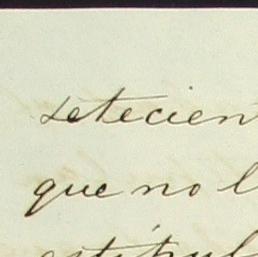 setecien
que no l
estipul